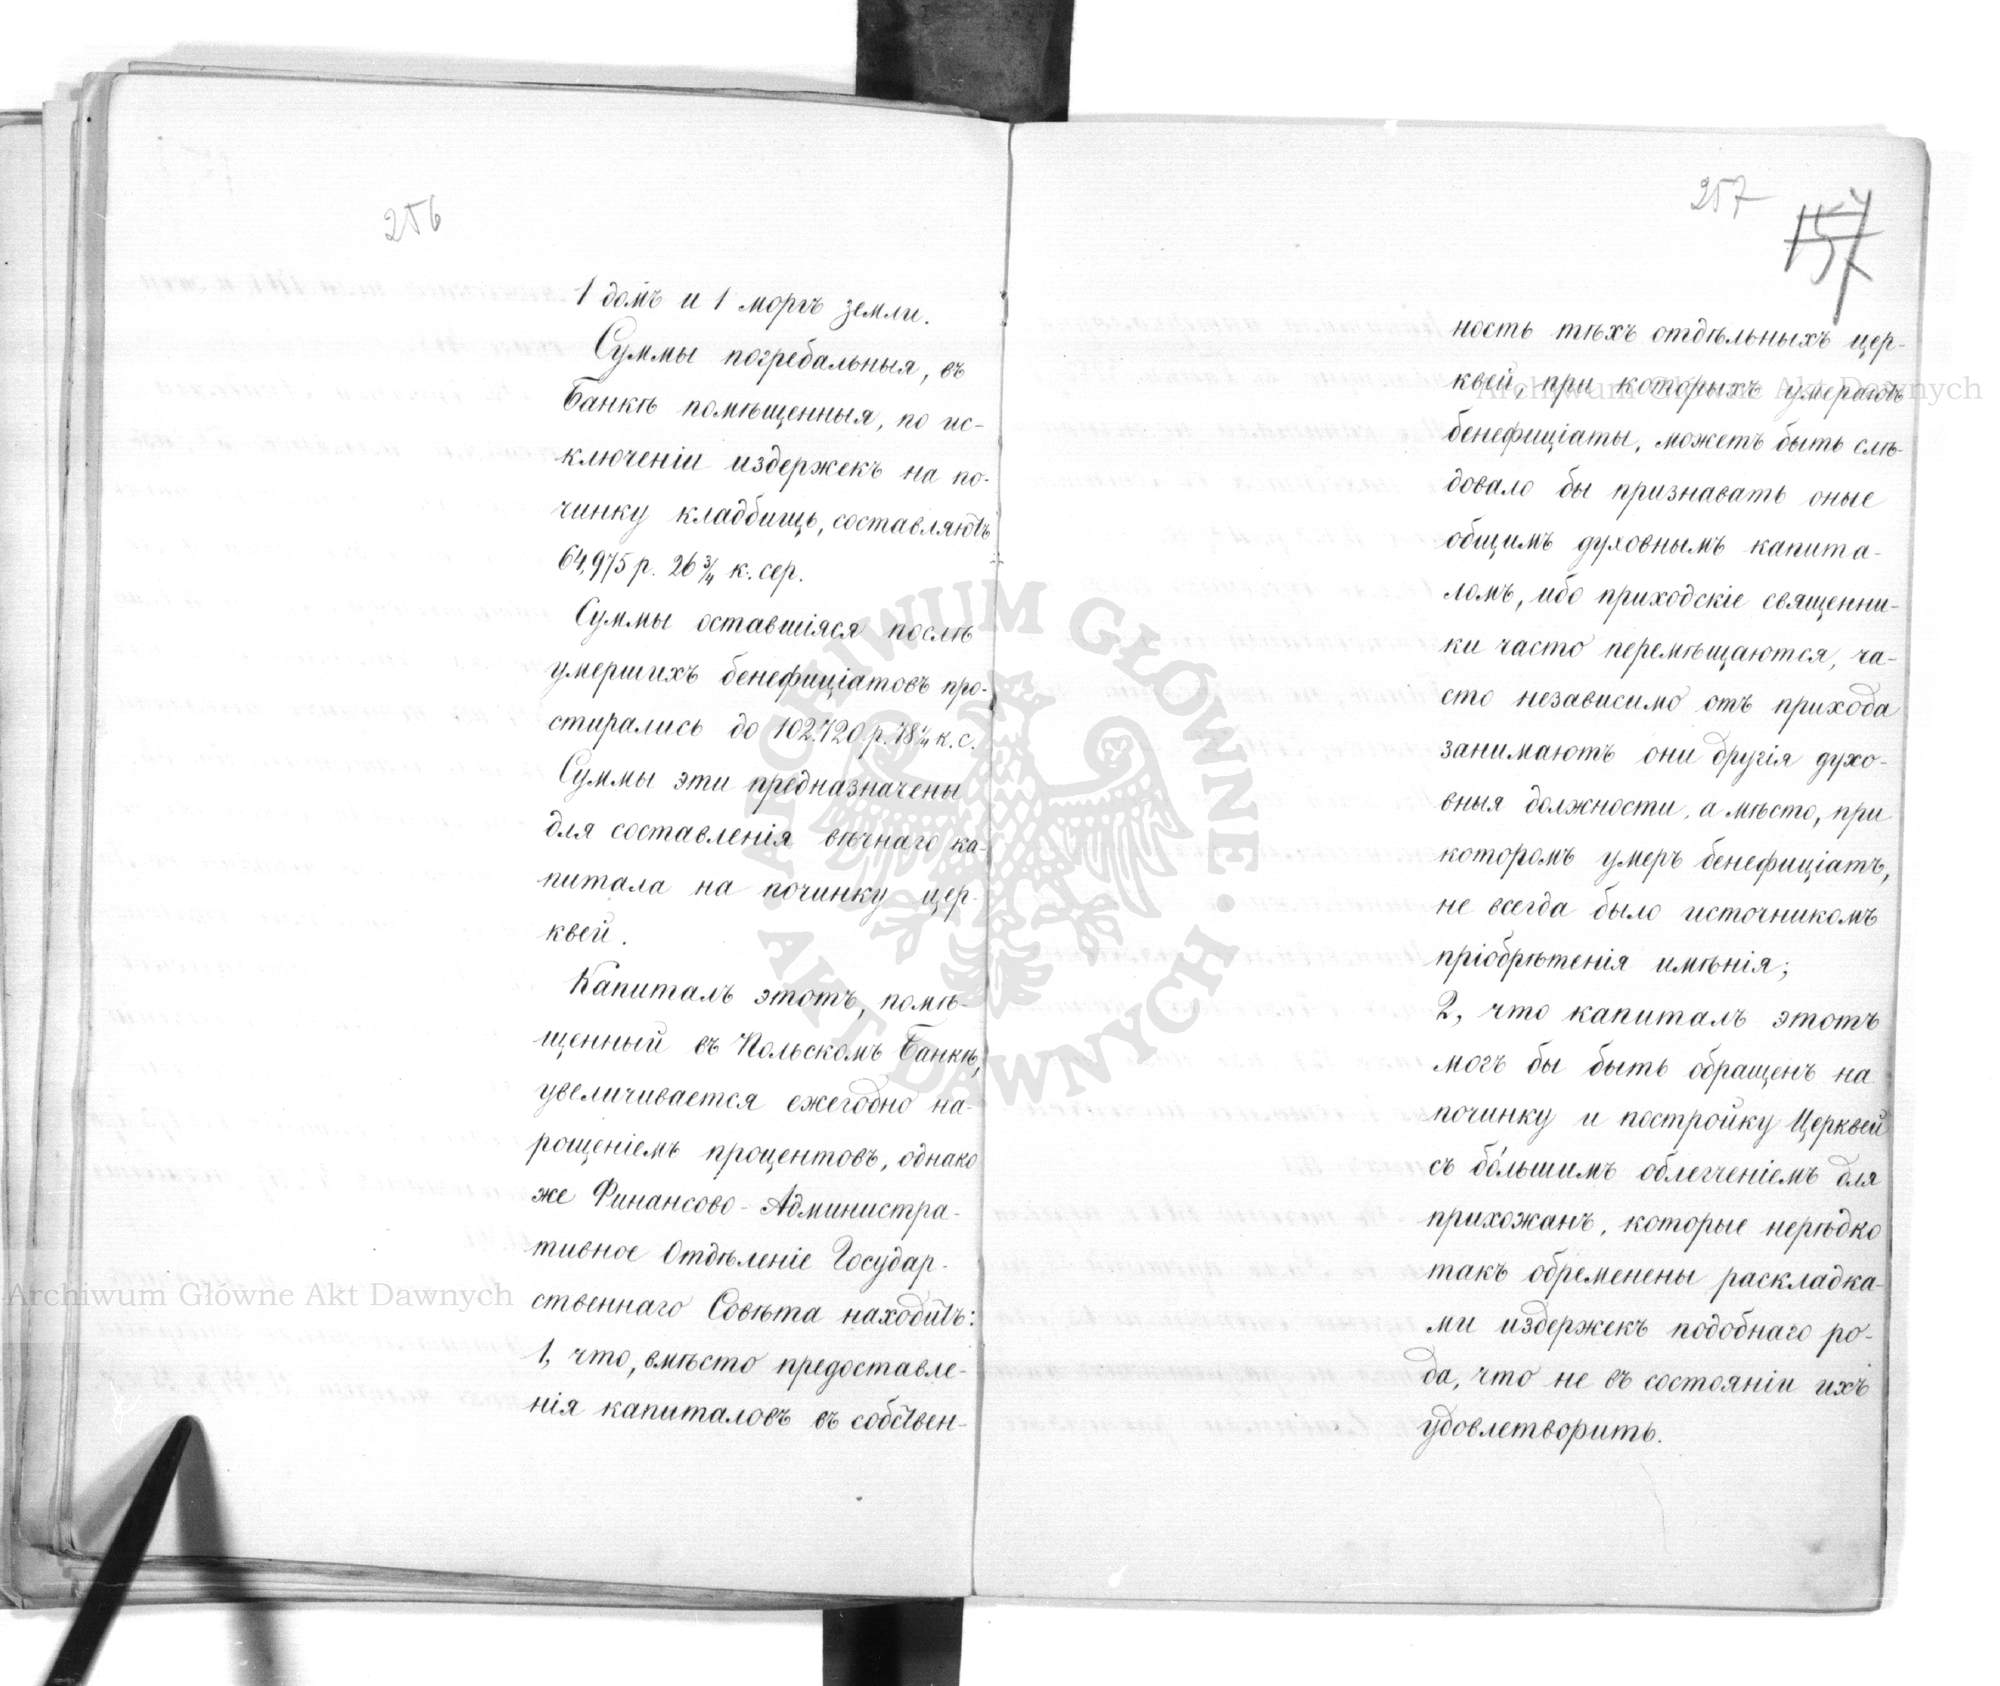 256
1 домъ и 1 моргъ земли.
Суммы погребальныя, въ
Банкѣ помѣщенныя, по ис-
ключеніи издержекъ на по-
чинку кладбищъ, составляютъ
64,975 р. 26 3/4 к. сер.
Суммы оставшіяся послѣ
умершихъ бенефиціатовъ про-
стирались до 102.720 р. 78 1/4 к. с.
Суммы эти предназначены
для составленія вѣчнаго ка-
питала на починку цер-
квей.
Капиталъ этотъ, помѣ-
щенный въ Польскомъ Банкѣ,
увеличивается ежегодно на-
рощеніемъ процентовъ, однако
же Финансово-Администра-
тивное Отдѣленіе Государ-
ственнаго Совѣта находитъ:
1, что, вмѣсто предоставле-
нія капиталовъ въ собствен-
257
157
ность тѣхъ отдѣльныхъ цер-
квей, при которыхъ умераютъ
бенефиціаты, можетъ быть слѣ-
довало бы признавать оные
общимъ духовнымъ капита-
ломъ, ибо приходскіе священни-
ки часто перемѣщаются, ча-
сто независимо отъ прихода
занимаютъ они другія духо-
вныя должности, а мѣсто, при
которомъ умеръ бенефиціатъ,
не всегда было источникомъ
пріобрѣтенія имѣнія;
2, что капиталъ этотъ
могъ бы быть обращенъ на
починку и постройку Церквей
съ бо́льшимъ облегченіемъ для
прихожанъ, которые нерѣдко
такъ обременены раскладка-
ми издержекъ подобнаго ро-
да, что не въ состояніи ихъ
удовлетворить.
Archiwum Główne Akt Dawnych
Archiwum Główne Akt Dawnych
ARCHIWUM GŁÓWNE · AKT DAWNYCH ·